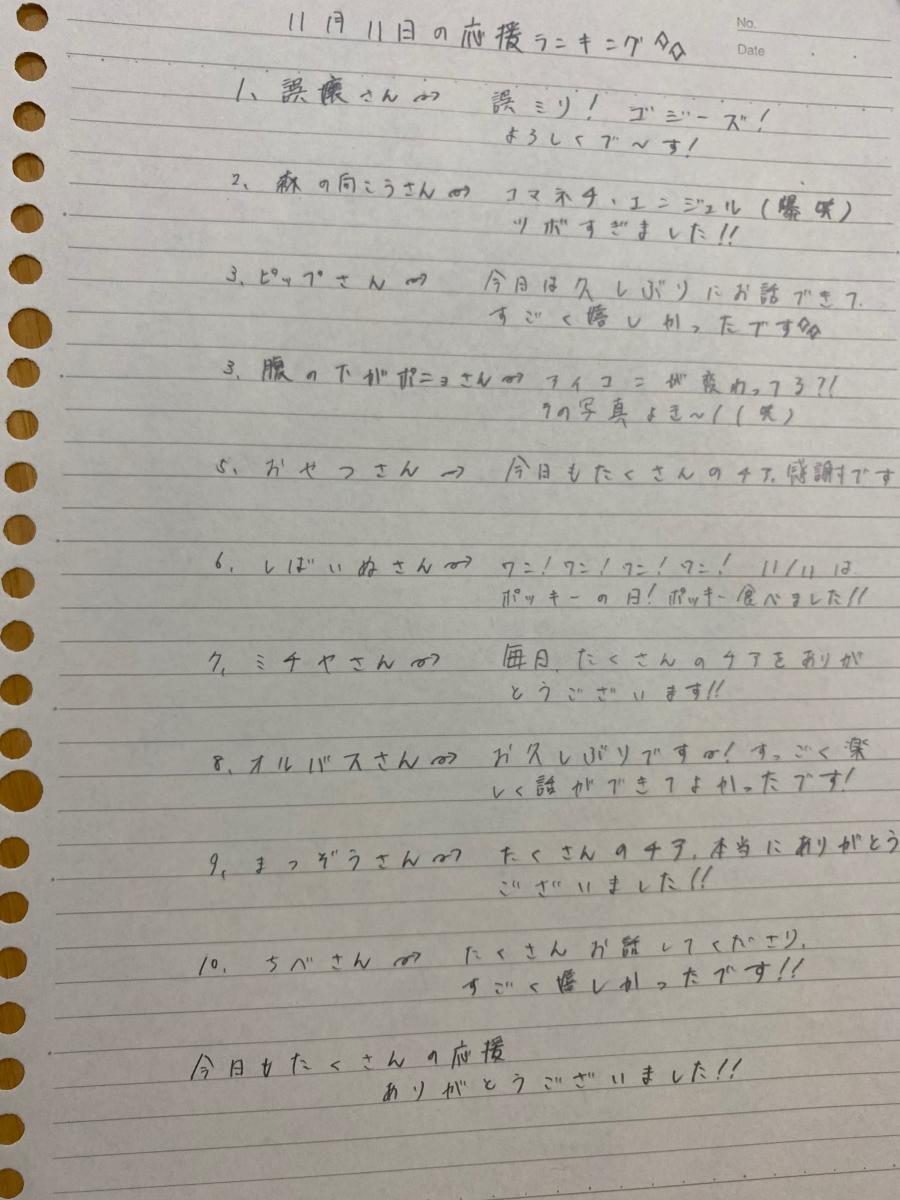 11月11日の応援ランキング◇◇
No.
Date
1、誤壊さん〜〉 誤ミリ! ゴジーズ!
よろしくで〜す!
2、森の向こうさん〜〉 コマネチ・エンジェル(爆笑)
ツボすぎました!!
3、ピップさん〜〉 今日は久しぶりにお話できて、
すごく嬉しかったです◇◇
3、腹の下がポニョさん〜〉 アイコンが変わってる?!
の写真よき〜!(笑)
5、おやつさん〜〉 今日もたくさんのチア、感謝です
6、しばいぬさん〜〉 ワン!ワン!ワン!ワン! 11/11は
ポッキーの日!ポッキー食べました!!
7、ミチヤさん〜〉 毎日、たくさんのチアをありが
とうございます!!
8、オルバスさん〜〉 お久しぶりです〜!すっごく楽
しく話ができてよかったです!
9、まつぞうさん〜〉 たくさんのチア、本当にありがとう
ございました!!
10、ちべさん〜〉 たくさんお話してくださり、
すごく嬉しかったです!!
今日もたくさんの応援
ありがとうございました!!